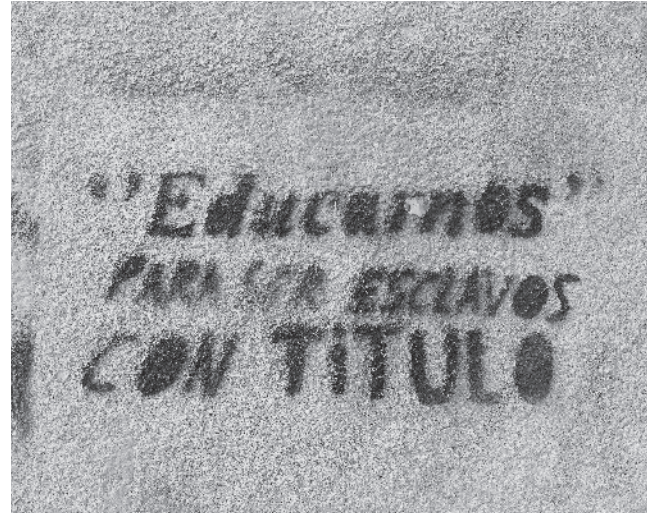 "Educarnos"
PARA SER ESCLAVOS
CON TiTULO